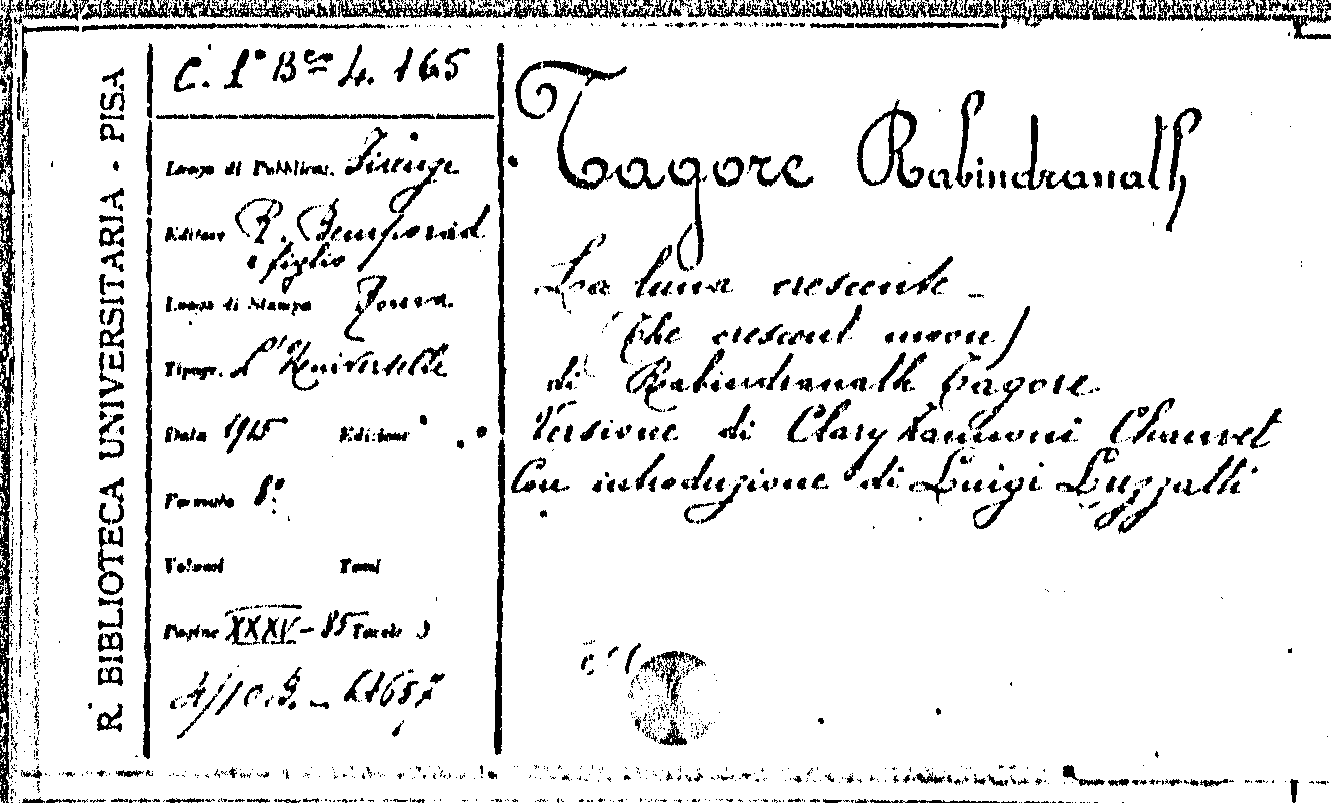 R. BIBLIOTECA UNIVERSITARIA - PISA
C. 1° B.ne 4. 165
Luogo di Pubblicaz. Firenze
Editore R. Bemporad
e figlio
Luogo di Stampa Roma
Tipogr. L'Universelle
Data 1915 Edizione
Formato 8°
Volumi Tomi
Pagine XXXV-85 Tavole 3
Tagore Rabindranath
La luna crescente -
(The crescent moon)
di Rabindranath Tagore
Versione di Clary Zannoni Chauvet
Con introduzione di Luigi Luzzatti